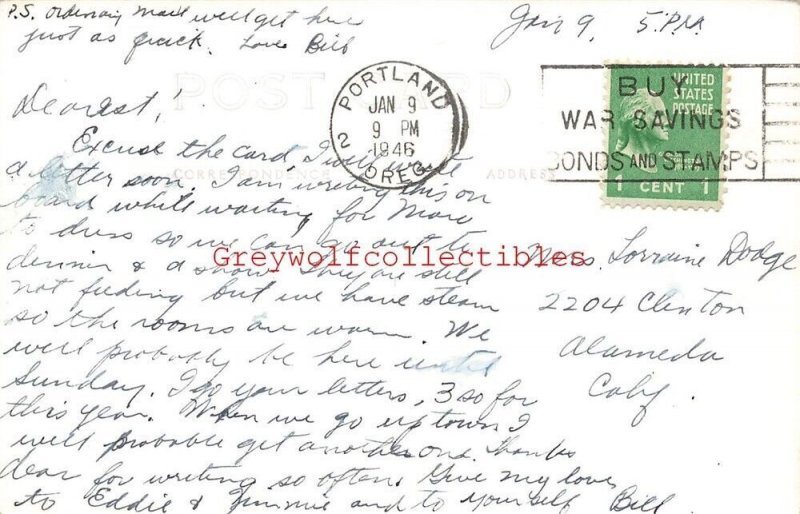 P.S. Ordinary mail will get here
just as quick. Love Bill
Jan 9, 5 P.M.
POST CARD
CORRESPONDENCE
ADDRESS
PORTLAND
JAN 9
9 PM
1946
2
OREG.
BUY
WAR SAVINGS
BONDS AND STAMPS
UNITED
STATES
POSTAGE
1 CENT 1
Dearest!
Excuse the card I will write
a letter soon. I am writing this on
board while waiting for
to dress so we can go out to
dinner & a show. They are still
not feeding but we have steam
so the rooms are warm. We
will probably be here until
Sunday. I go your letters, 3 so far
this year. When we go up town I
will probable get another one. Thanks
dear for writing so often. Give my love
to Eddie & Jimmie and to yourself Bill
Greywolfcollectibles
Mrs. Lorraine Dodge
2204 Clinton
Alameda
Calif.